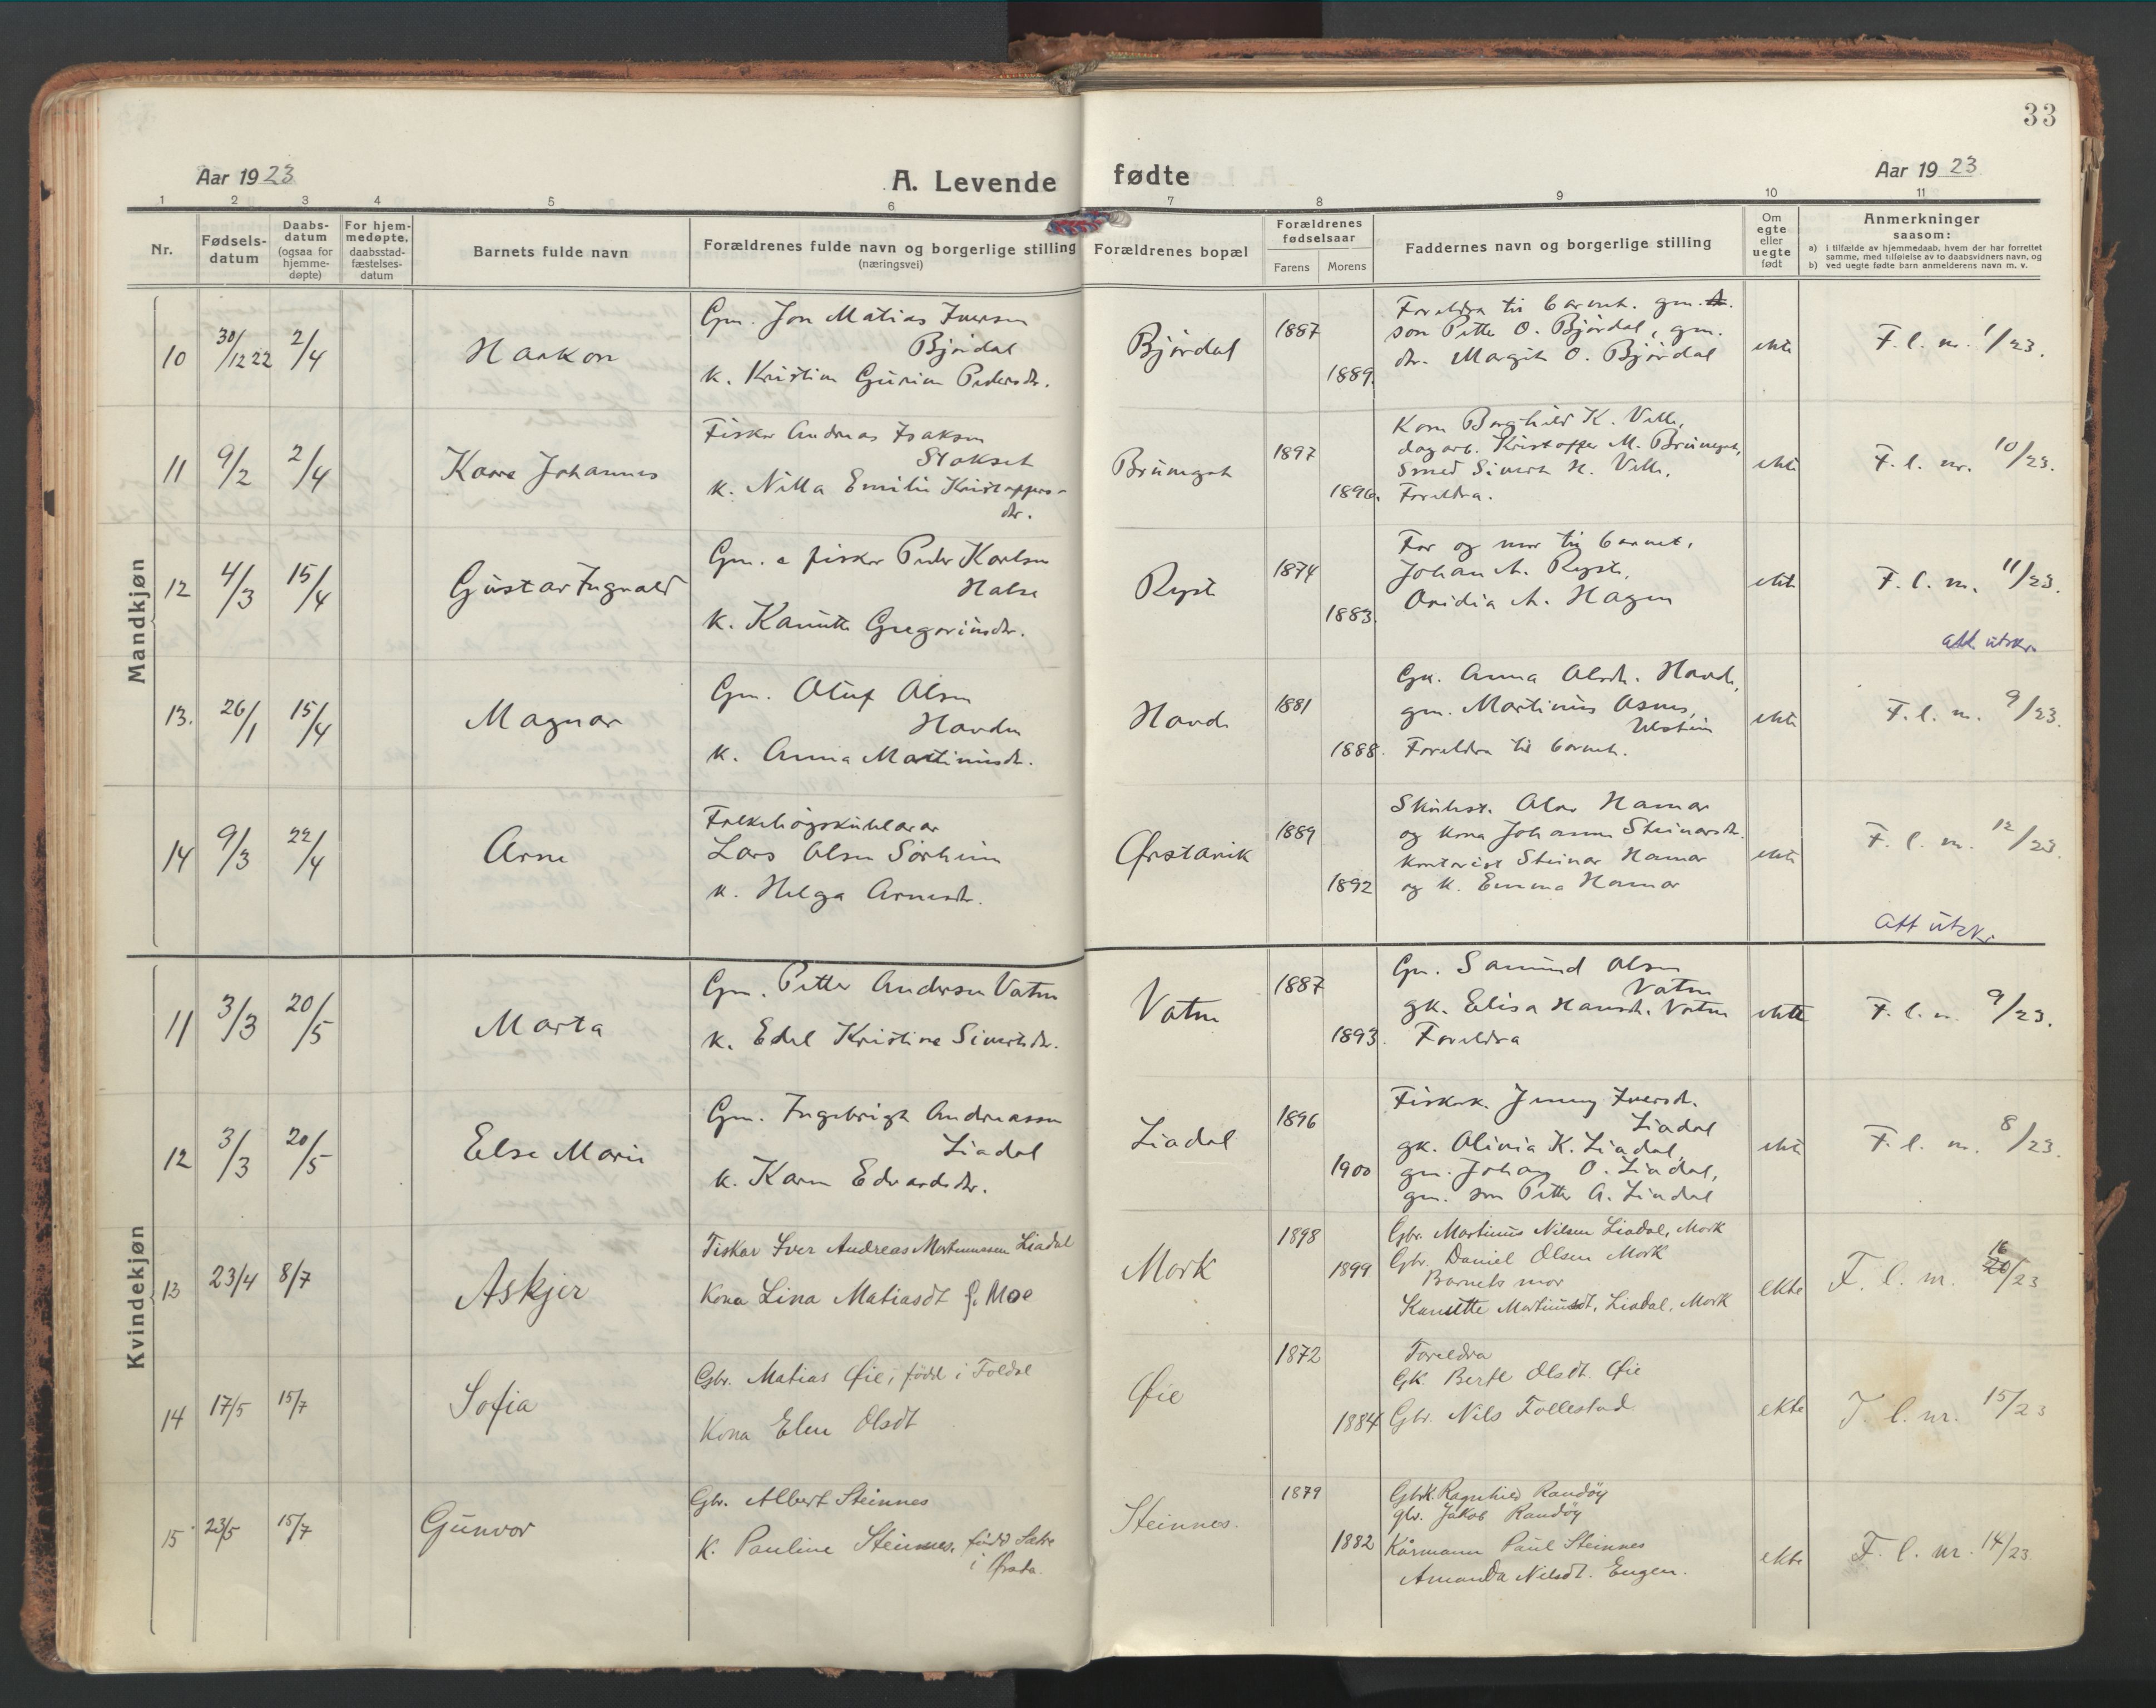 33
Aar 1923
A. Levende fødte
Aar 1923
1 2 3 4 5 6 7 8 9 10 11
Nr.
Fødsels-
datum
Daabs-
datum
(ogsaa for
hjemme-
døpte)
For hjem-
medøpte,
daabsstad-
fæstelses-
datum
Barnets fulde navn
Forældrenes fulde navn og borgerlige stilling
(næringsvei)
Forældrenes bopæl
Forældrenes
fødselsaar
Farens Morens
Faddernes navn og borgerlige stilling
Om
egte
eller
uegte
født
Anmerkninger
saasom:
a) i tilfælde av hjemmedaab, hvem der har forrettet
samme, med tilføielse av to daabsvidners navn, og
b) ved uegte fødte barn anmelderens navn m. v.
Mandkjøn
10 30/12 22 2/4
Haakon
Gm. Jon Matias Iversen
Bjørdal
k. Kristine Gurine Pedersdr.
Bjørdal
1887
1889.
Foreldra til barnet. gm.
son Petter O. Bjørdal, gm.
dr. Margit O. Bjørdal
ekte
F. l. nr. 1/23.
11 9/2 2/4
Kåre Johannes
Fiskar Andreas Isaksen
Stokset
k. Nilla Emilie Kristoffers-
dr.
Brungot
1897
1896.
Kona Borghild K. Velle,
dagarb. Kristoffer M. Brungot,
Smed Sivert H. Velle,
Foreldra.
ekte
F. l. nr. 10/23.
12 4/3 15/4
Gustav Ingvald
Gm. e fiskar Peder Karlsen
Halse
k. Kanutte Gregoriusdr.
Ryst
1874
1883.
Far og mor til barnet,
Johan A. Ryst,
Ovidia A. Hagen
ekte
F. l. nr. 11/23.
att utskr.
13. 26/1 15/4
Magnar
Gm. Oluf Olsen
Havden
k. Anna Martinusdr.
Havde
1881
1888.
Gk. Anna Olsdr. Havde,
gm. Martinus Osnes,
Ulstein
Foreldra til barnet.
ekte
F. l. nr. 9/23.
14 9/3 22/4
Arne
Folkehøgskulelærar
Lars Olsen Sørheim
k. Helga Arnesdr.
Ørstavik
1889
1892
Skulest. Olav Hamar
og kona Johanne Steinarsdr.
kontorist Steinar Hamar
og k. Emma Hamar
ekte
F. l. nr. 12/23.
Att utskr.
Kvindekjøn
11 3/3 20/5
Marta
Gm. Petter Andersen Vatne
k. Edel Kristine Sivertsdr.
Vatne
1887
1893.
Gm. Samund Olsen
Vatne
gk. Elisa Hansdr. Vatne
Foreldra
ekte
F. l. nr. 9/23.
12 3/3 20/5
Else Marie
Gm. Ingebrigt Andreassen
Liadal
k. Karen Edvardsdr.
Liadal
1896
1900
Fiskark. Jenny Iversdr.
Liadal
gk. Olivia K. Liadal,
gm. Johan O. Liadal,
gm. son Petter A. Liadal
ekte
F. l. nr. 8/23.
13 23/4 8/7
Askjer
Fiskar Iver Andreas Martinussen Liadal
Kona Lina Matiasdt f. Moe
Mork
1898
1899
Gbr. Martinus Nilsen Liadal, Mork
Gbr. Daniel Olsen Mork
Barnets mor
Kanutte Martinusdt, Liadal, Mork
ekte
F. l. nr. 16/23
14 17/5 15/7
Sofia
Gbr. Matias Øie, fødd i Foldal
Kona Elen Olsdt
Øie
1872
1884
Foreldra
Gk. Berte Olsdt. Øie
Gbr. Nils Follestad.
ekte
F. l. nr. 15/23
15 23/5 15/7
Gunvor
Gbr. Albert Steinnes
K. Pauline Steinnes, fødd Sætre
i Ørsta.
Steinnes.
1879
1882
Gbrk. Ragnhild Randøy
gbr. Jakob Randøy
Kårmann Paul Steinnes
Amanda Nilsdt. Engen.
ekte
F. l. nr. 14/23